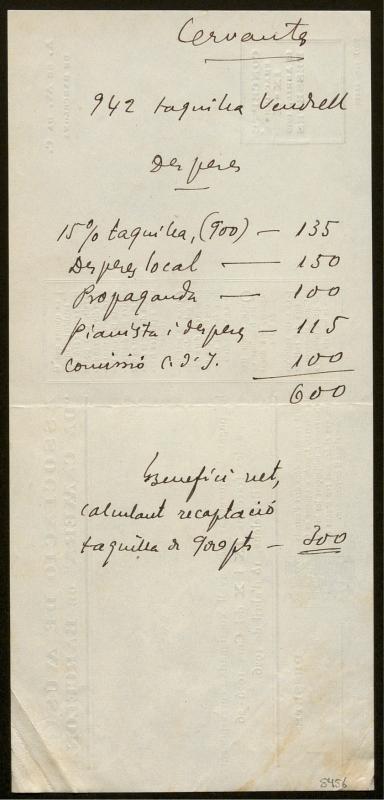 Cervantes
942 taquilla Vendrell
Despeses
15% taquilla, (900) — 135
Despeses local — 150
Propaganda — 100
Pianista i despeses — 115
Comissió C. d. J. 100
600
Benefici net,
calculant recaptació
taquilla de 900 pts — 300
8456